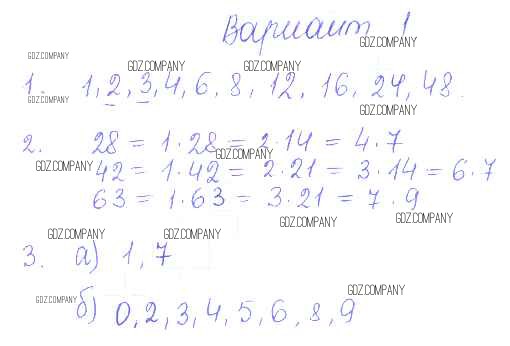 Вариант 1
1. 1, 2, 3, 4, 6, 8, 12, 16, 24, 48.
2. 28 = 1·28 = 2·14 = 4·7
42 = 1·42 = 2·21 = 3·14 = 6·7
63 = 1·63 = 3·21 = 7·9
3. а) 1, 7
б) 0, 2, 3, 4, 5, 6, 8, 9
GDZ.COMPANY
GDZ.COMPANY
GDZ.COMPANY
GDZ.COMPANY
GDZ.COMPANY
GDZ.COMPANY
GDZ.COMPANY
GDZ.COMPANY
GDZ.COMPANY
GDZ.COMPANY
GDZ.COMPANY
GDZ.COMPANY
GDZ.COMPANY
GDZ.COMPANY